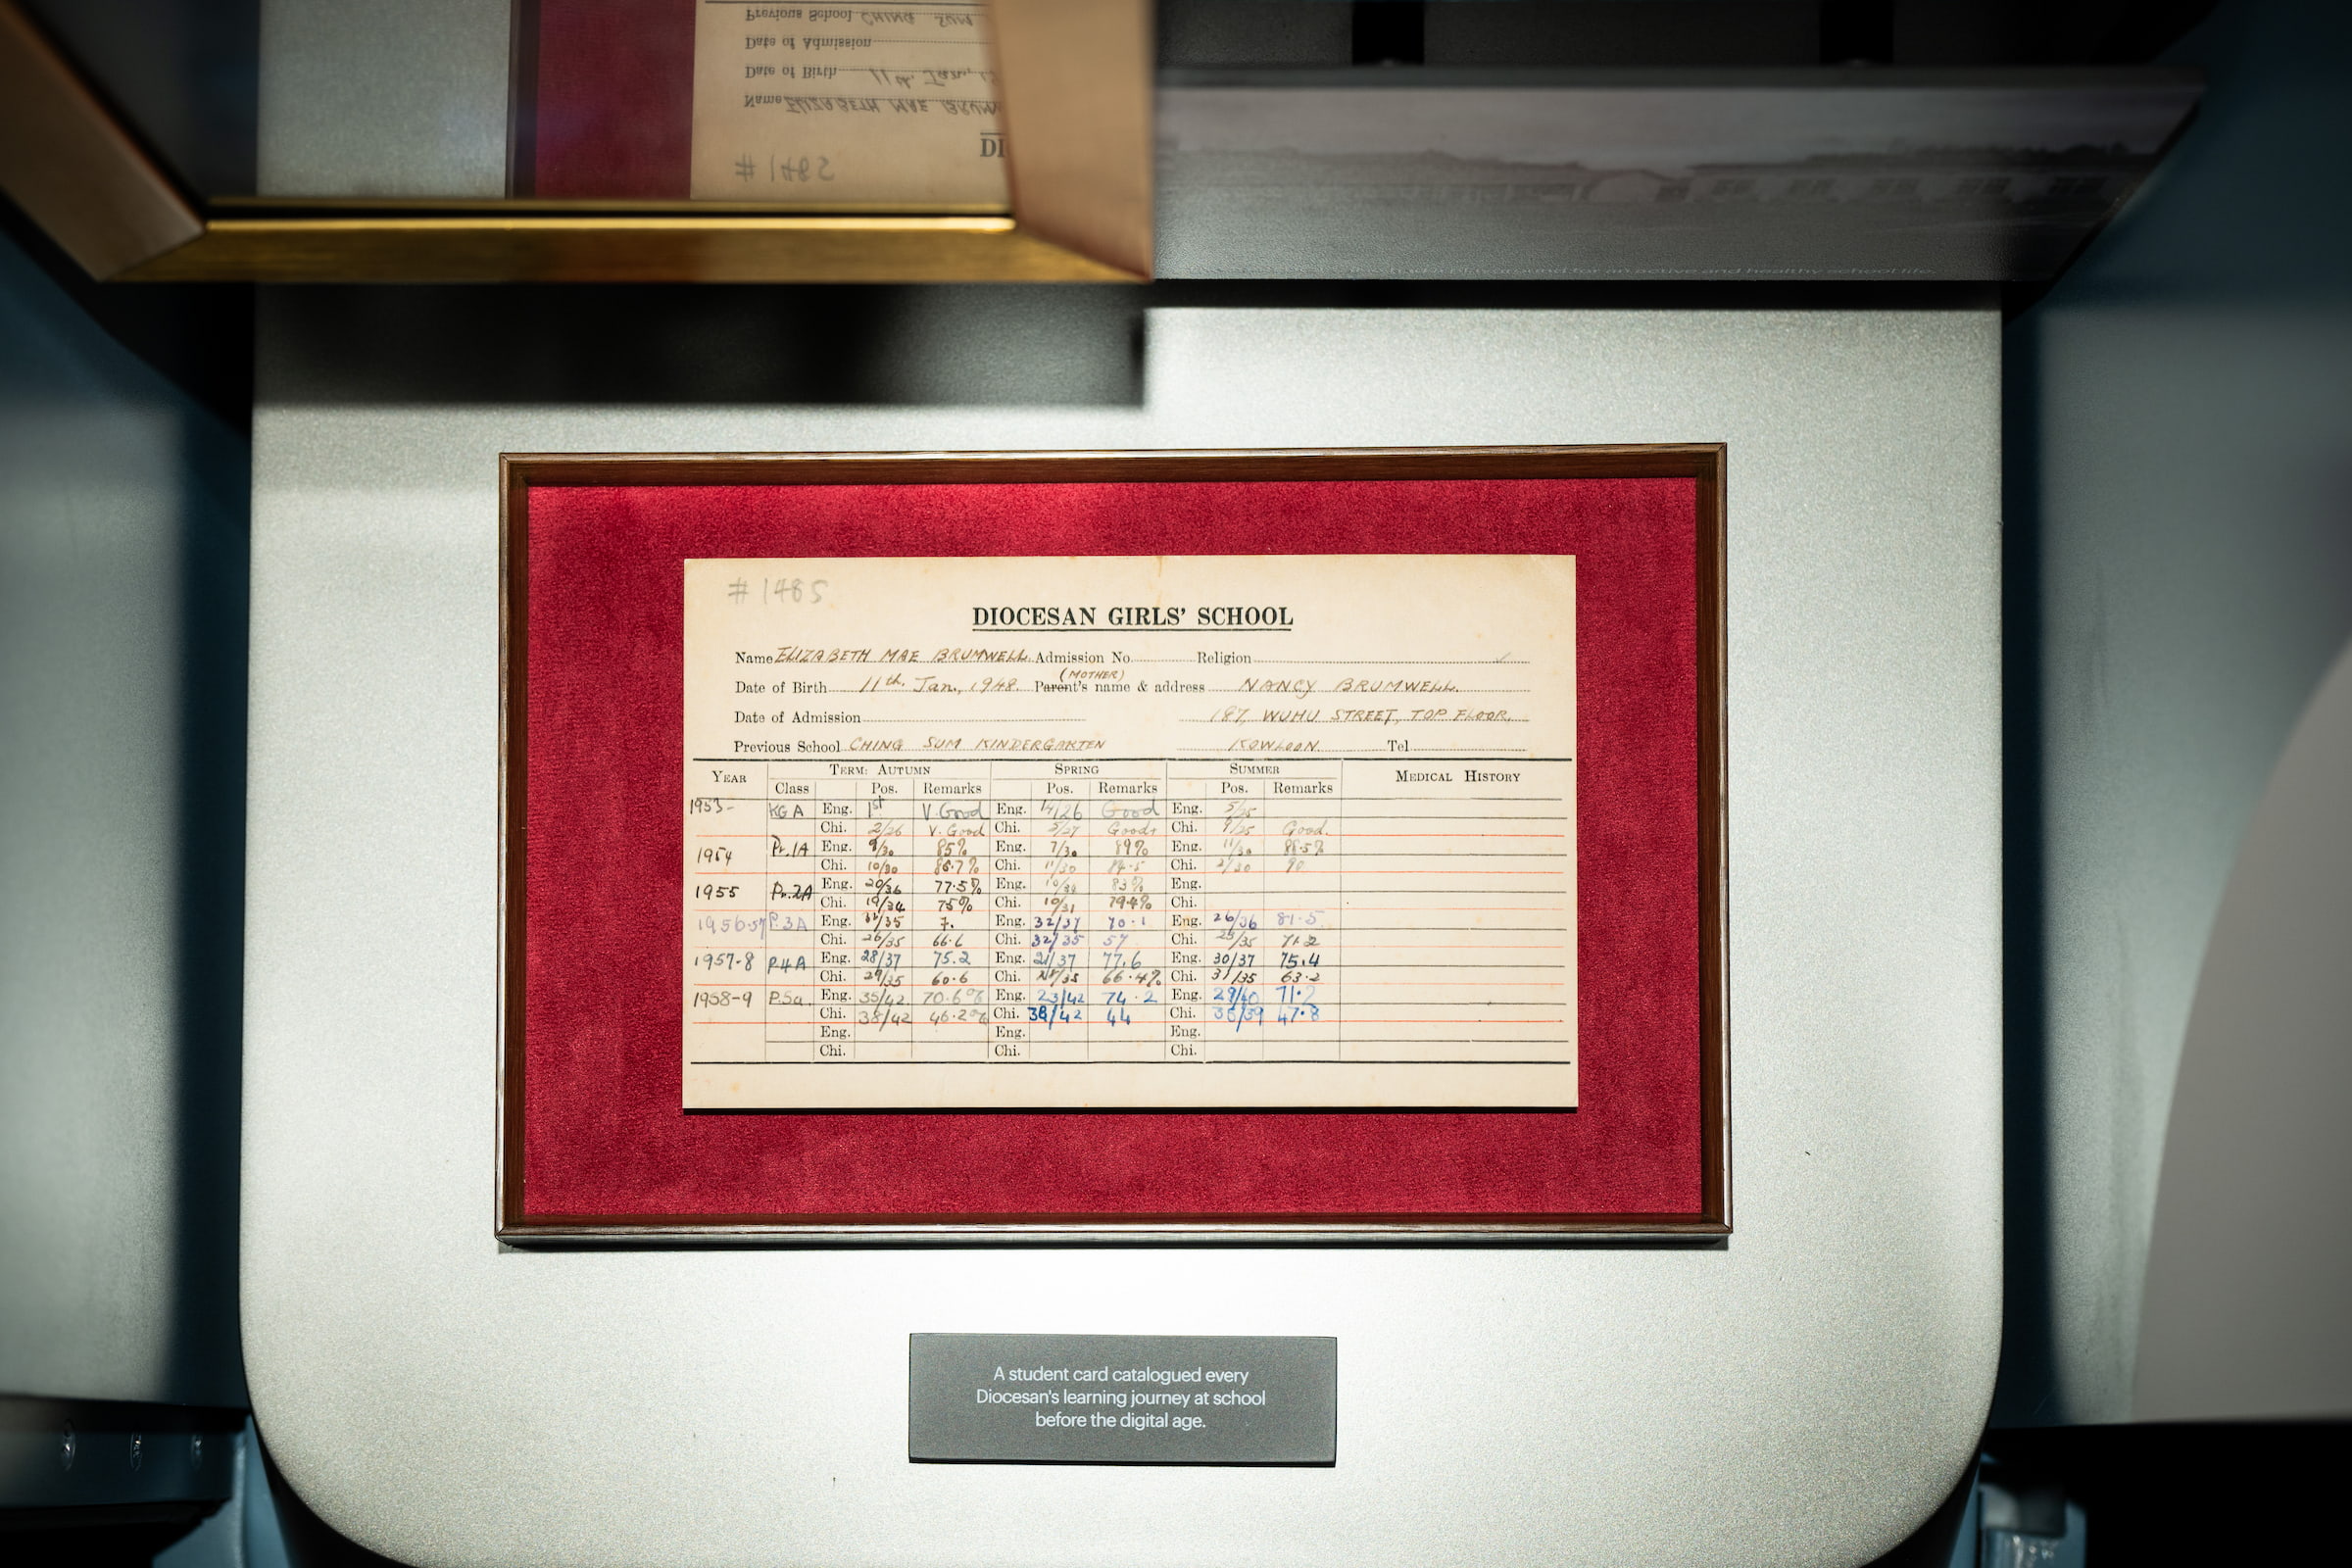 # 1485
DIOCESAN GIRLS' SCHOOL
Name ELIZABETH MAE BRUMWELL Admission No. Religion
(MOTHER)
Date of Birth 11th. Jan., 1948. Parent's name & address NANCY BRUMWELL.
Date of Admission 187, WUHU STREET, TOP FLOOR,
Previous School CHING SUM KINDERGARTEN KOWLOON. Tel.
YEAR TERM: AUTUMN SPRING SUMMER MEDICAL HISTORY
Class Pos. Remarks Pos. Remarks Pos. Remarks
1953- KG A Eng. 1st V. Good Eng. Good Eng. 5/25
Chi. 2/26 V. Good Chi. Chi. 9/25 Good.
1954 Pr. 1A Eng. 85% Eng. 7/30 89% Eng. 11/30 88.5%
Chi. 10/30 86.7% Chi. 11/30 84.5 Chi. 2/30 90
1955 Pr. 2A Eng. 20/36 77.5% Eng. 83% Eng.
Chi. 19/34 75% Chi. 10/31 79.4% Chi.
1956-57 P.3A Eng. Eng. 32/37 70.1 Eng. 26/36 81.5
Chi. 26/35 66.6 Chi. 32/35 57 Chi. 25/35 71.2
1957-8 P.4A Eng. 28/37 75.2 Eng. 21/37 77.6 Eng. 30/37 75.4
Chi. 29/35 60.6 Chi. 66.4% Chi. 31/35 63.2
1958-9 P.5a. Eng. 35/42 70.6% Eng. 23/42 74.2 Eng. 29/40 71.2
Chi. 38/42 46.2% Chi. 38/42 44 Chi. 47.8
Eng. Eng. Eng.
Chi. Chi. Chi.
A student card catalogued every
Diocesan's learning journey at school
before the digital age.